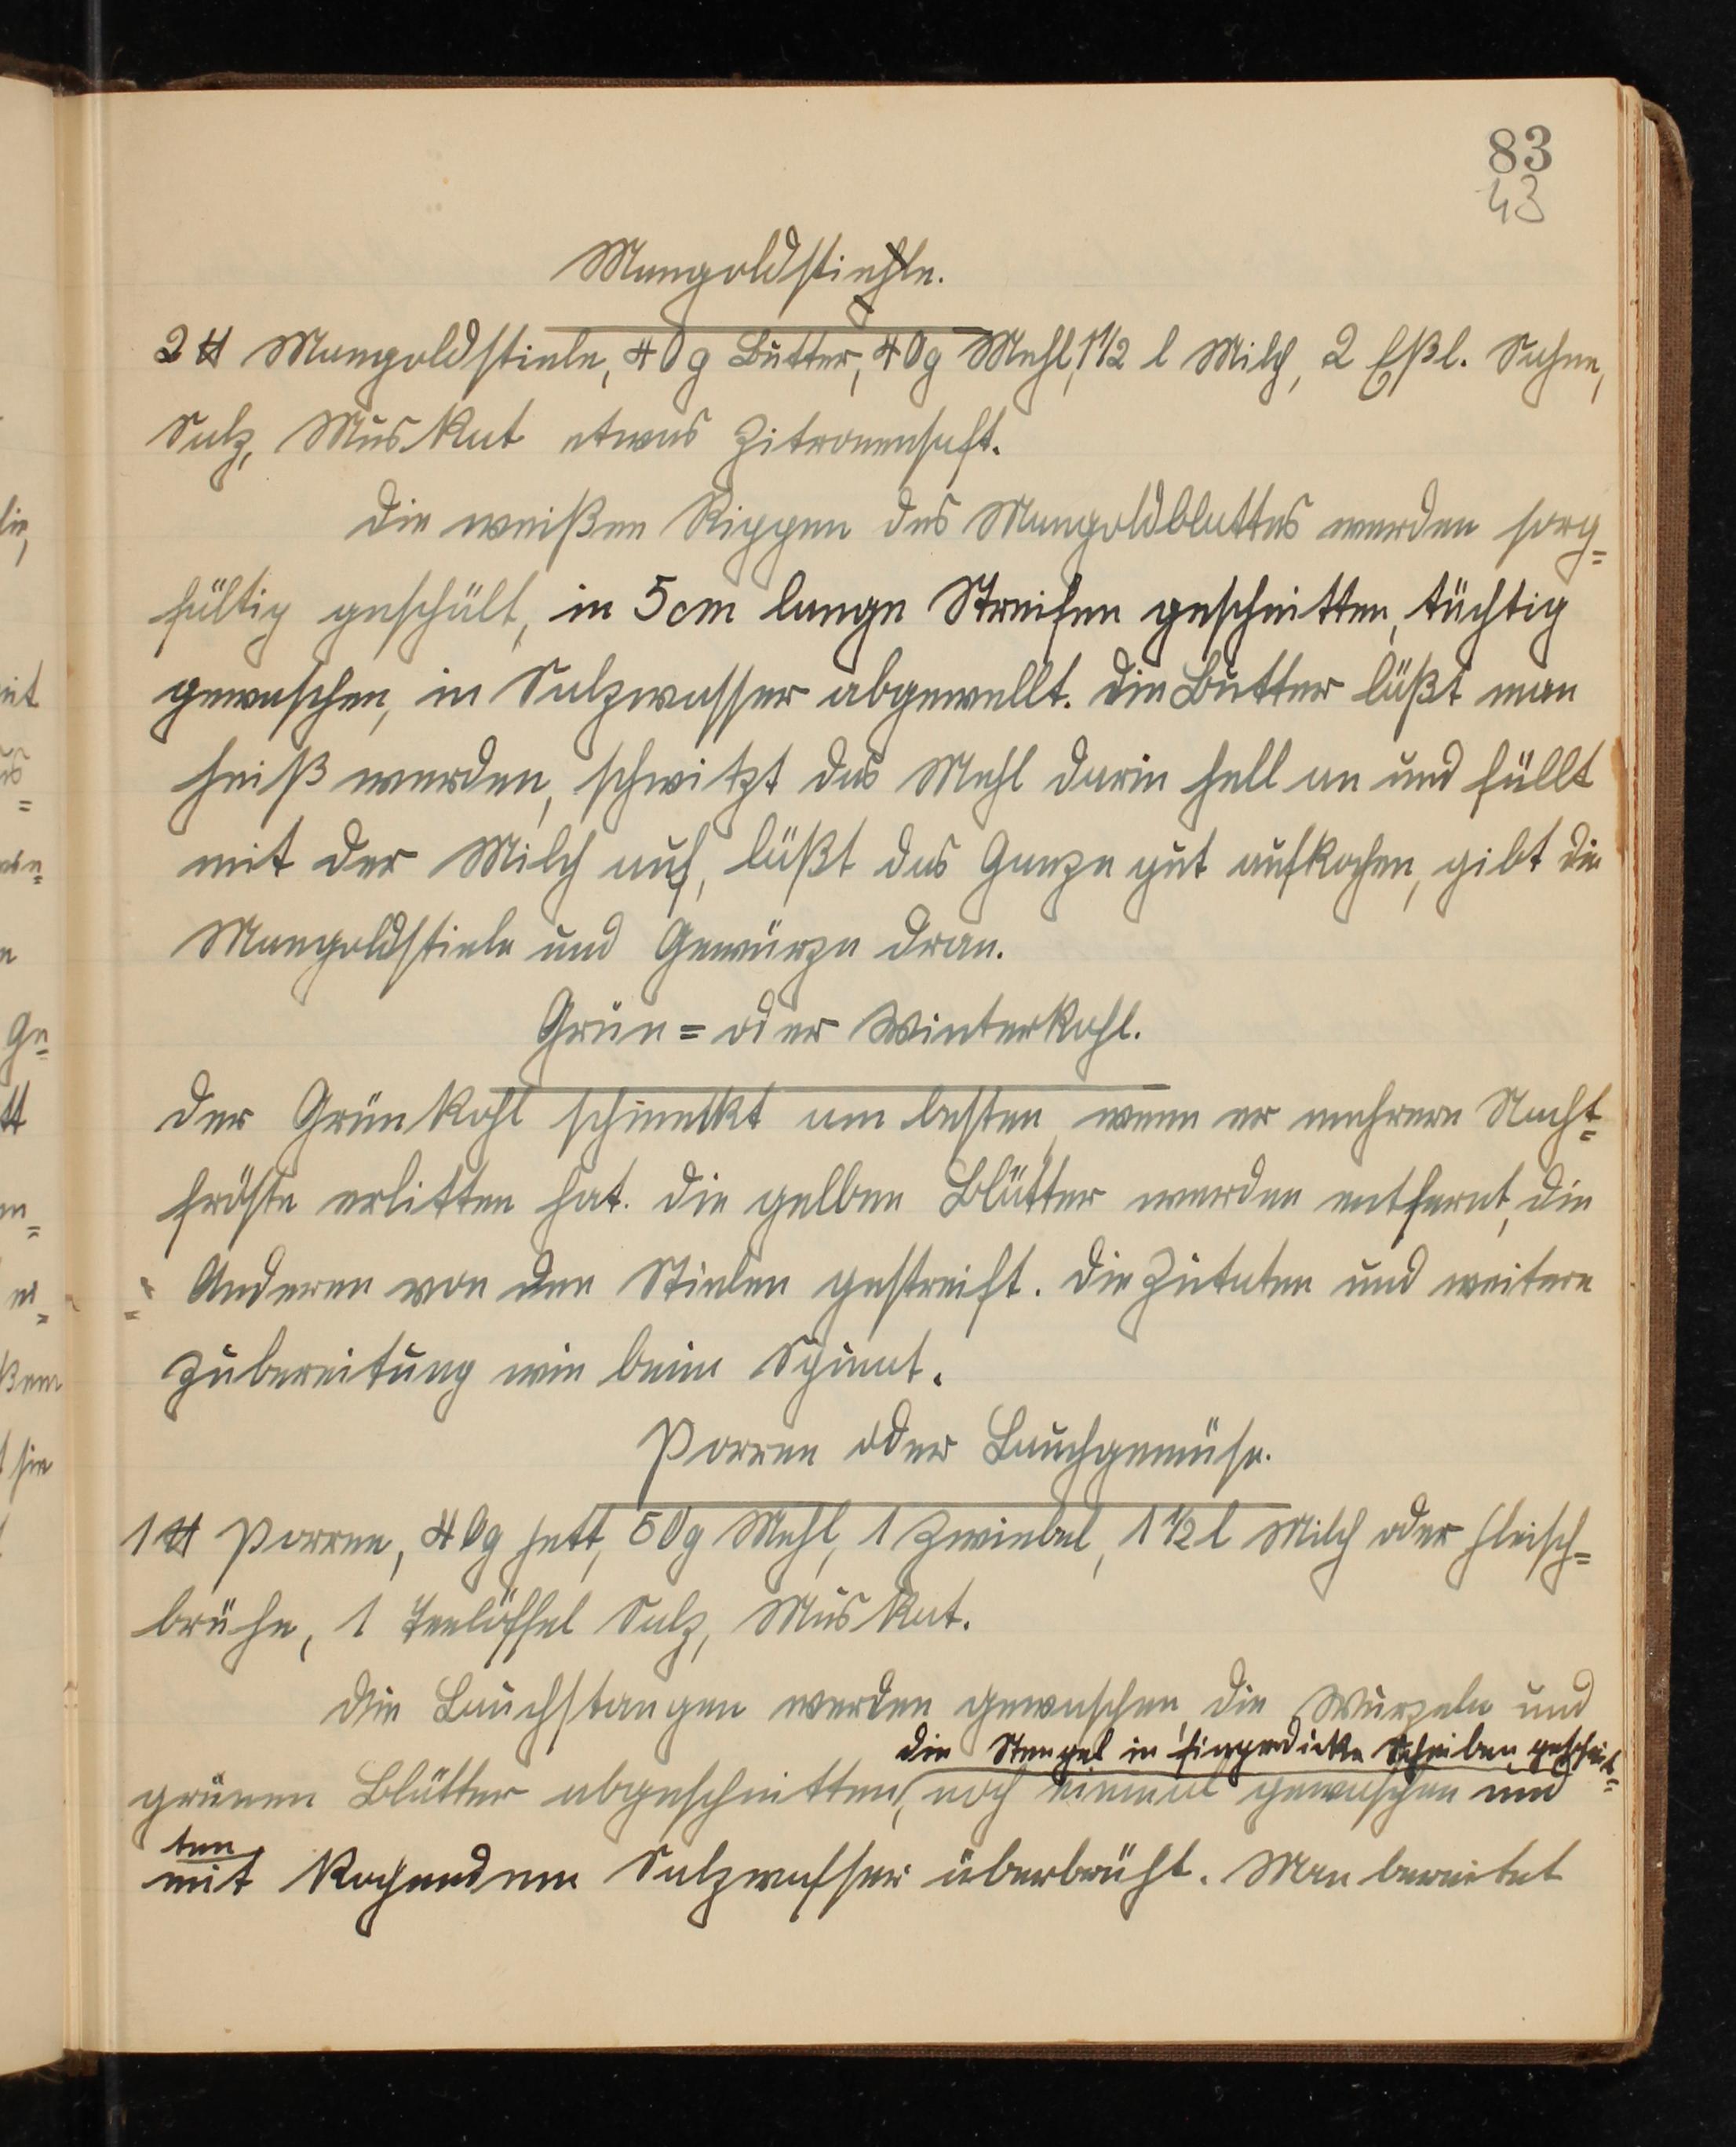 83
43
Mangoldstiehle.
2 ℔ Mangoldstiele, 40g Butter, 40g Mehl, 1½ l Milch, 2 Eßl. Sahne,
Salz, Muskat etwas Zitronensaft.
Die weißen Rippen des Mangoldblattes werden sorg=
fältig geschält, in 5cm lange Streifen geschnitten, tüchtig
gewaschen, in Salzwasser abgewellt. Die Butter läßt man
heiß werden, schwitzt das Mehl darin hell an und füllt
mit der Milch auf, läßt das Ganze gut aufkochen, gibt die
Mangoldstiele und Gewürze dran.
Grün= oder Winterkohl.
Der Grünkohl schmeckt am besten, wenn er mehrere Nacht=
fröste erlitten hat. Die gelben Blätter werden entfernt, die
Anderen von den Stielen gestreift. Die Zutaten und weitere
Zubereitung wie beim Spinat.
Porree oder Lauchgemüse.
1 ℔ Porree, 40g Fett, 50g Mehl, 1 Zwiebel, 1½ l Milch oder Fleisch=
brühe, 1 Teelöffel Salz, Muskat.
Die Lauchstangen werden gewaschen, die Wurzeln und
die Stengel in fingerdicke Scheiben geschnit=
grünen Blätter abgeschnitten, noch einmal gewaschen und
ten
mit kochendem Salzwasser überbrüht. Man bereitet